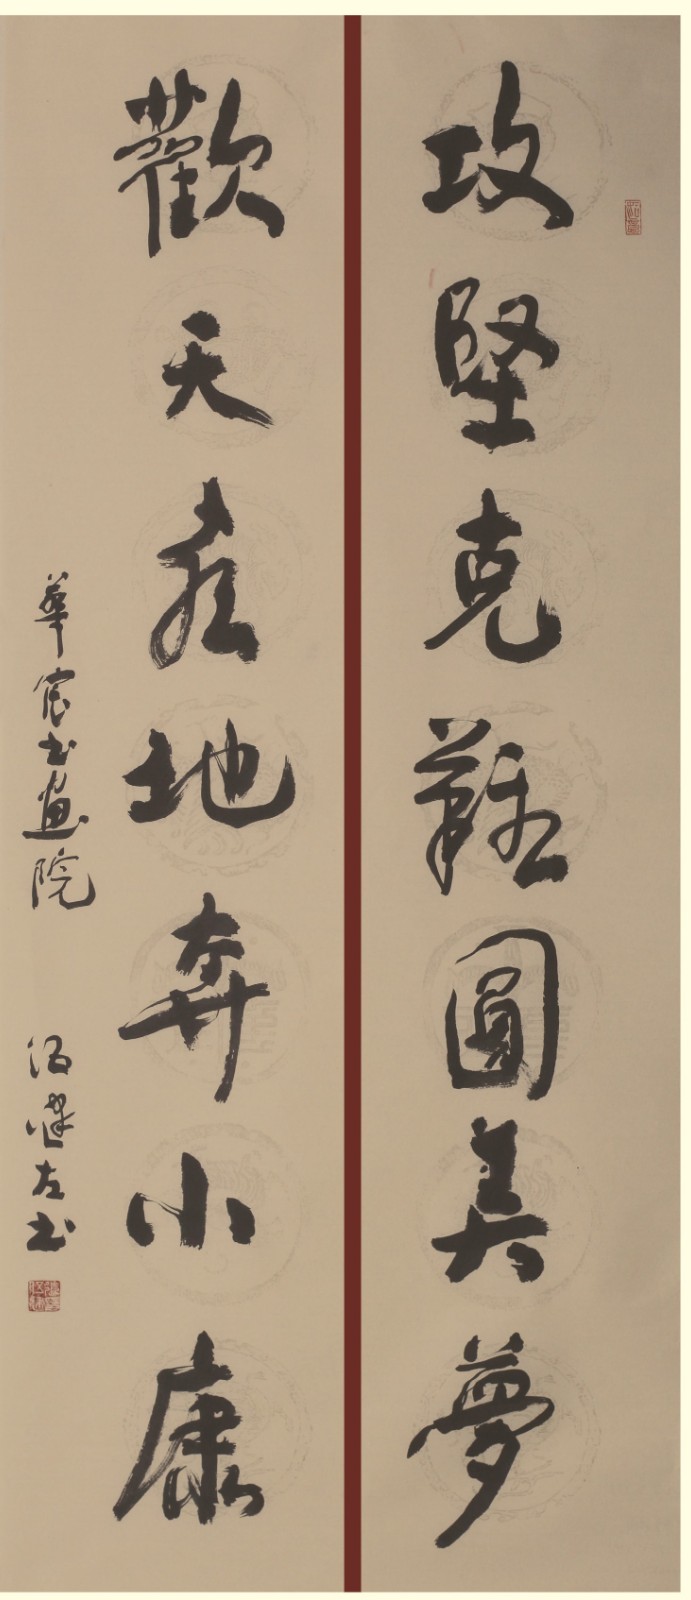 攻堅克難圓美夢
歡天喜地奔小康
華宸书画院
左书